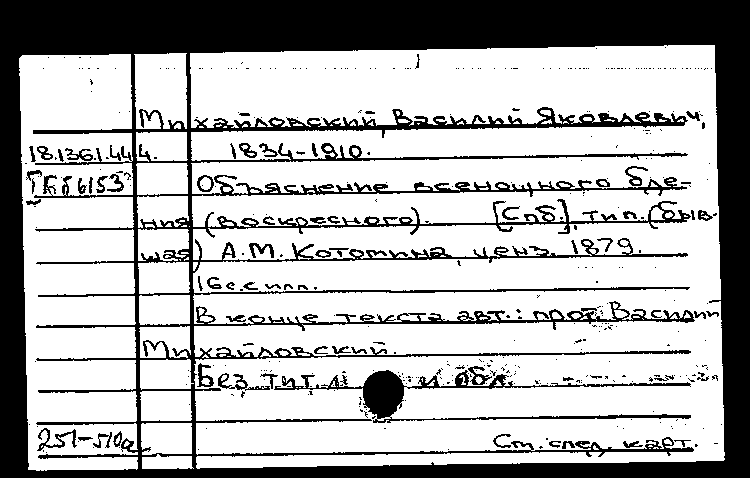 Михайловский, Василий Яковлевич,
18.136.1.444. 1834-1910.
Объяснение всенощного бде-
ния (воскресного). [Спб], тип. (быв-
шая) А.М. Котомина, ценз. 1879.
16 с. с илл.
В конце текста авт.: прот. Василий
Михайловский.
Без тит. л и обл.
251-510а См. след. карт.